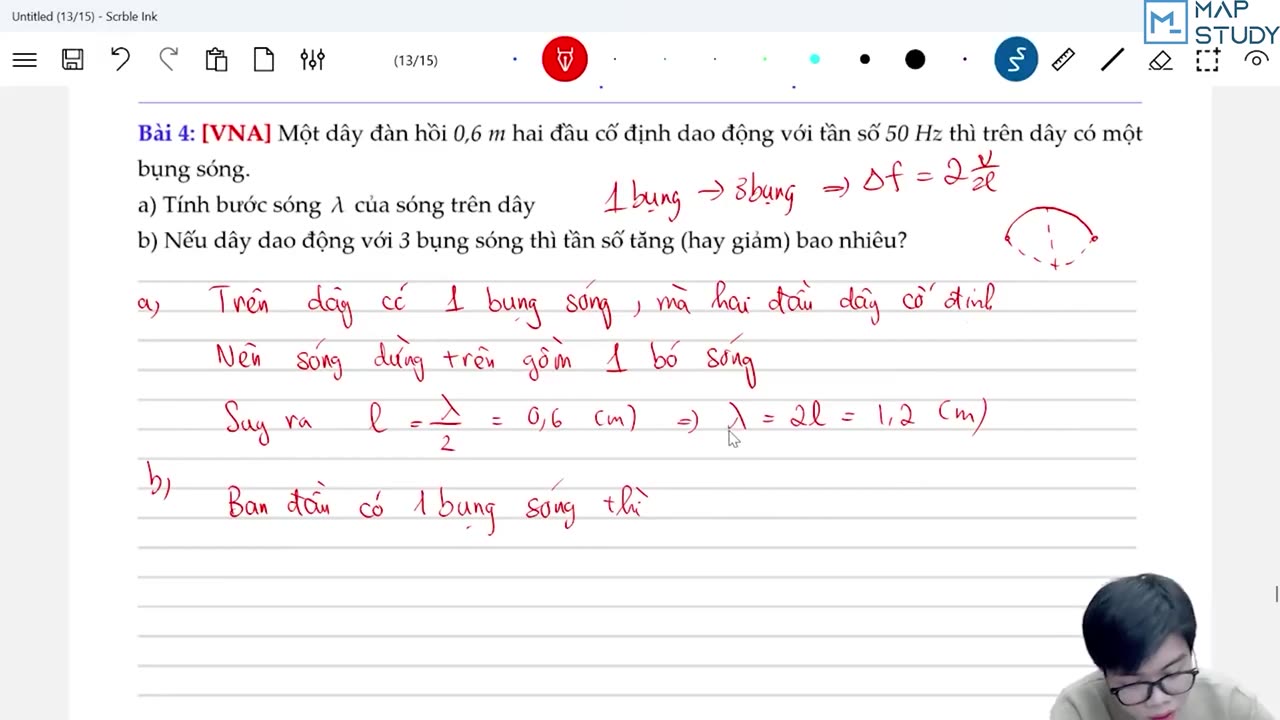 Untitled (13/15) - Scrble Ink
MAP
STUDY
(13/15)
Bài 4: [VNA] Một dây đàn hồi 0,6 m hai đầu cố định dao động với tần số 50 Hz thì trên dây có một
bụng sóng.
1 bụng → 3 bụng ⇒ Δf = 2 v/2l
a) Tính bước sóng λ của sóng trên dây
b) Nếu dây dao động với 3 bụng sóng thì tần số tăng (hay giảm) bao nhiêu?
a) Trên dây có 1 bụng sóng, mà hai đầu dây cố định
Nên sóng dừng trên gồm 1 bó sóng
Suy ra l = λ/2 = 0,6 (m) ⇒ λ = 2l = 1,2 (m)
b) Ban đầu có 1 bụng sóng thì